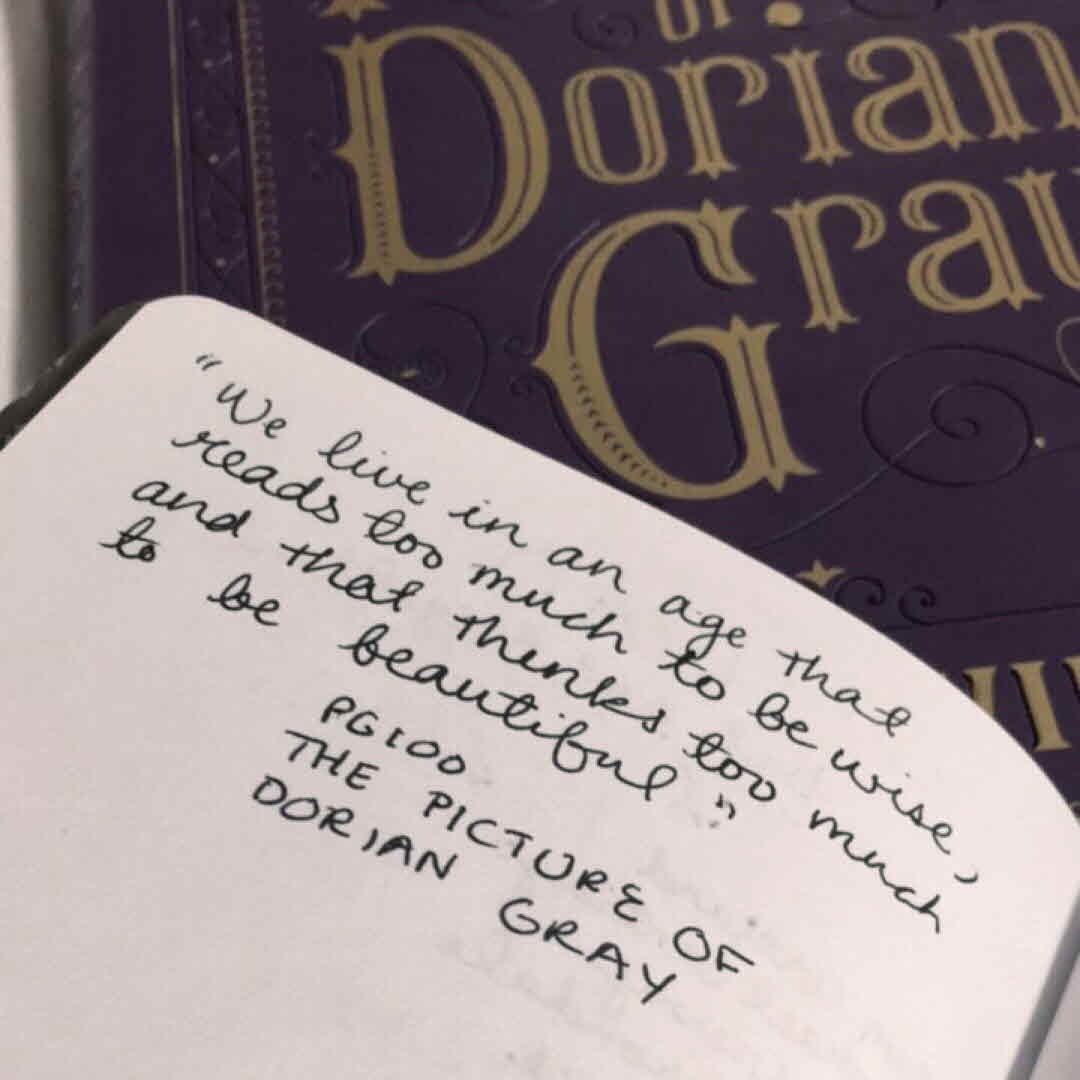 OF
DORIAN
GRAY
"We live in an age that
reads too much to be wise,
and that thinks too much
to be beautiful"
PG 100
THE PICTURE OF
DORIAN GRAY